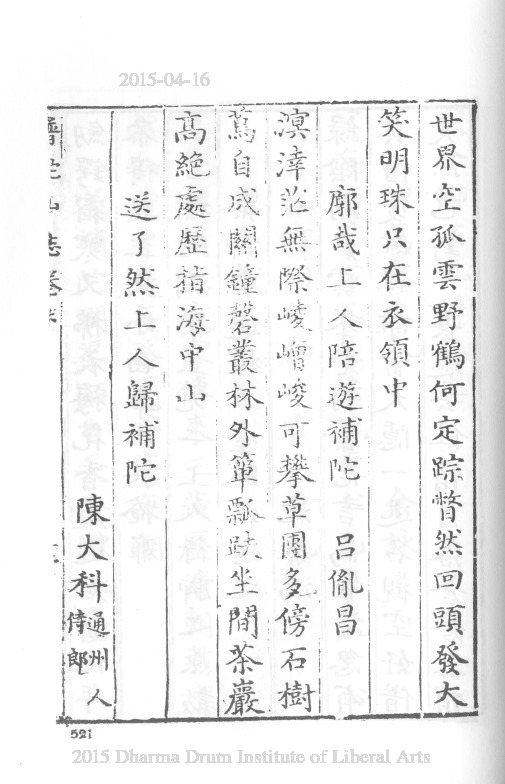 2015-04-16
世界空孤雲野鶴何定踪瞥然回頭發大
笑明珠只在衣領中
廓哉上人陪遊補陀 呂胤昌
溟涬茫無際崚嶒峻可攀草團多傍石樹
蔦自成關鐘磬叢林外簞瓢趺坐間茶巖
高絕處歷指海中山
送了然上人歸補陀
陳大科 通州人 侍郎
普陀山志卷
521
2015 Dharma Drum Institute of Liberal Arts